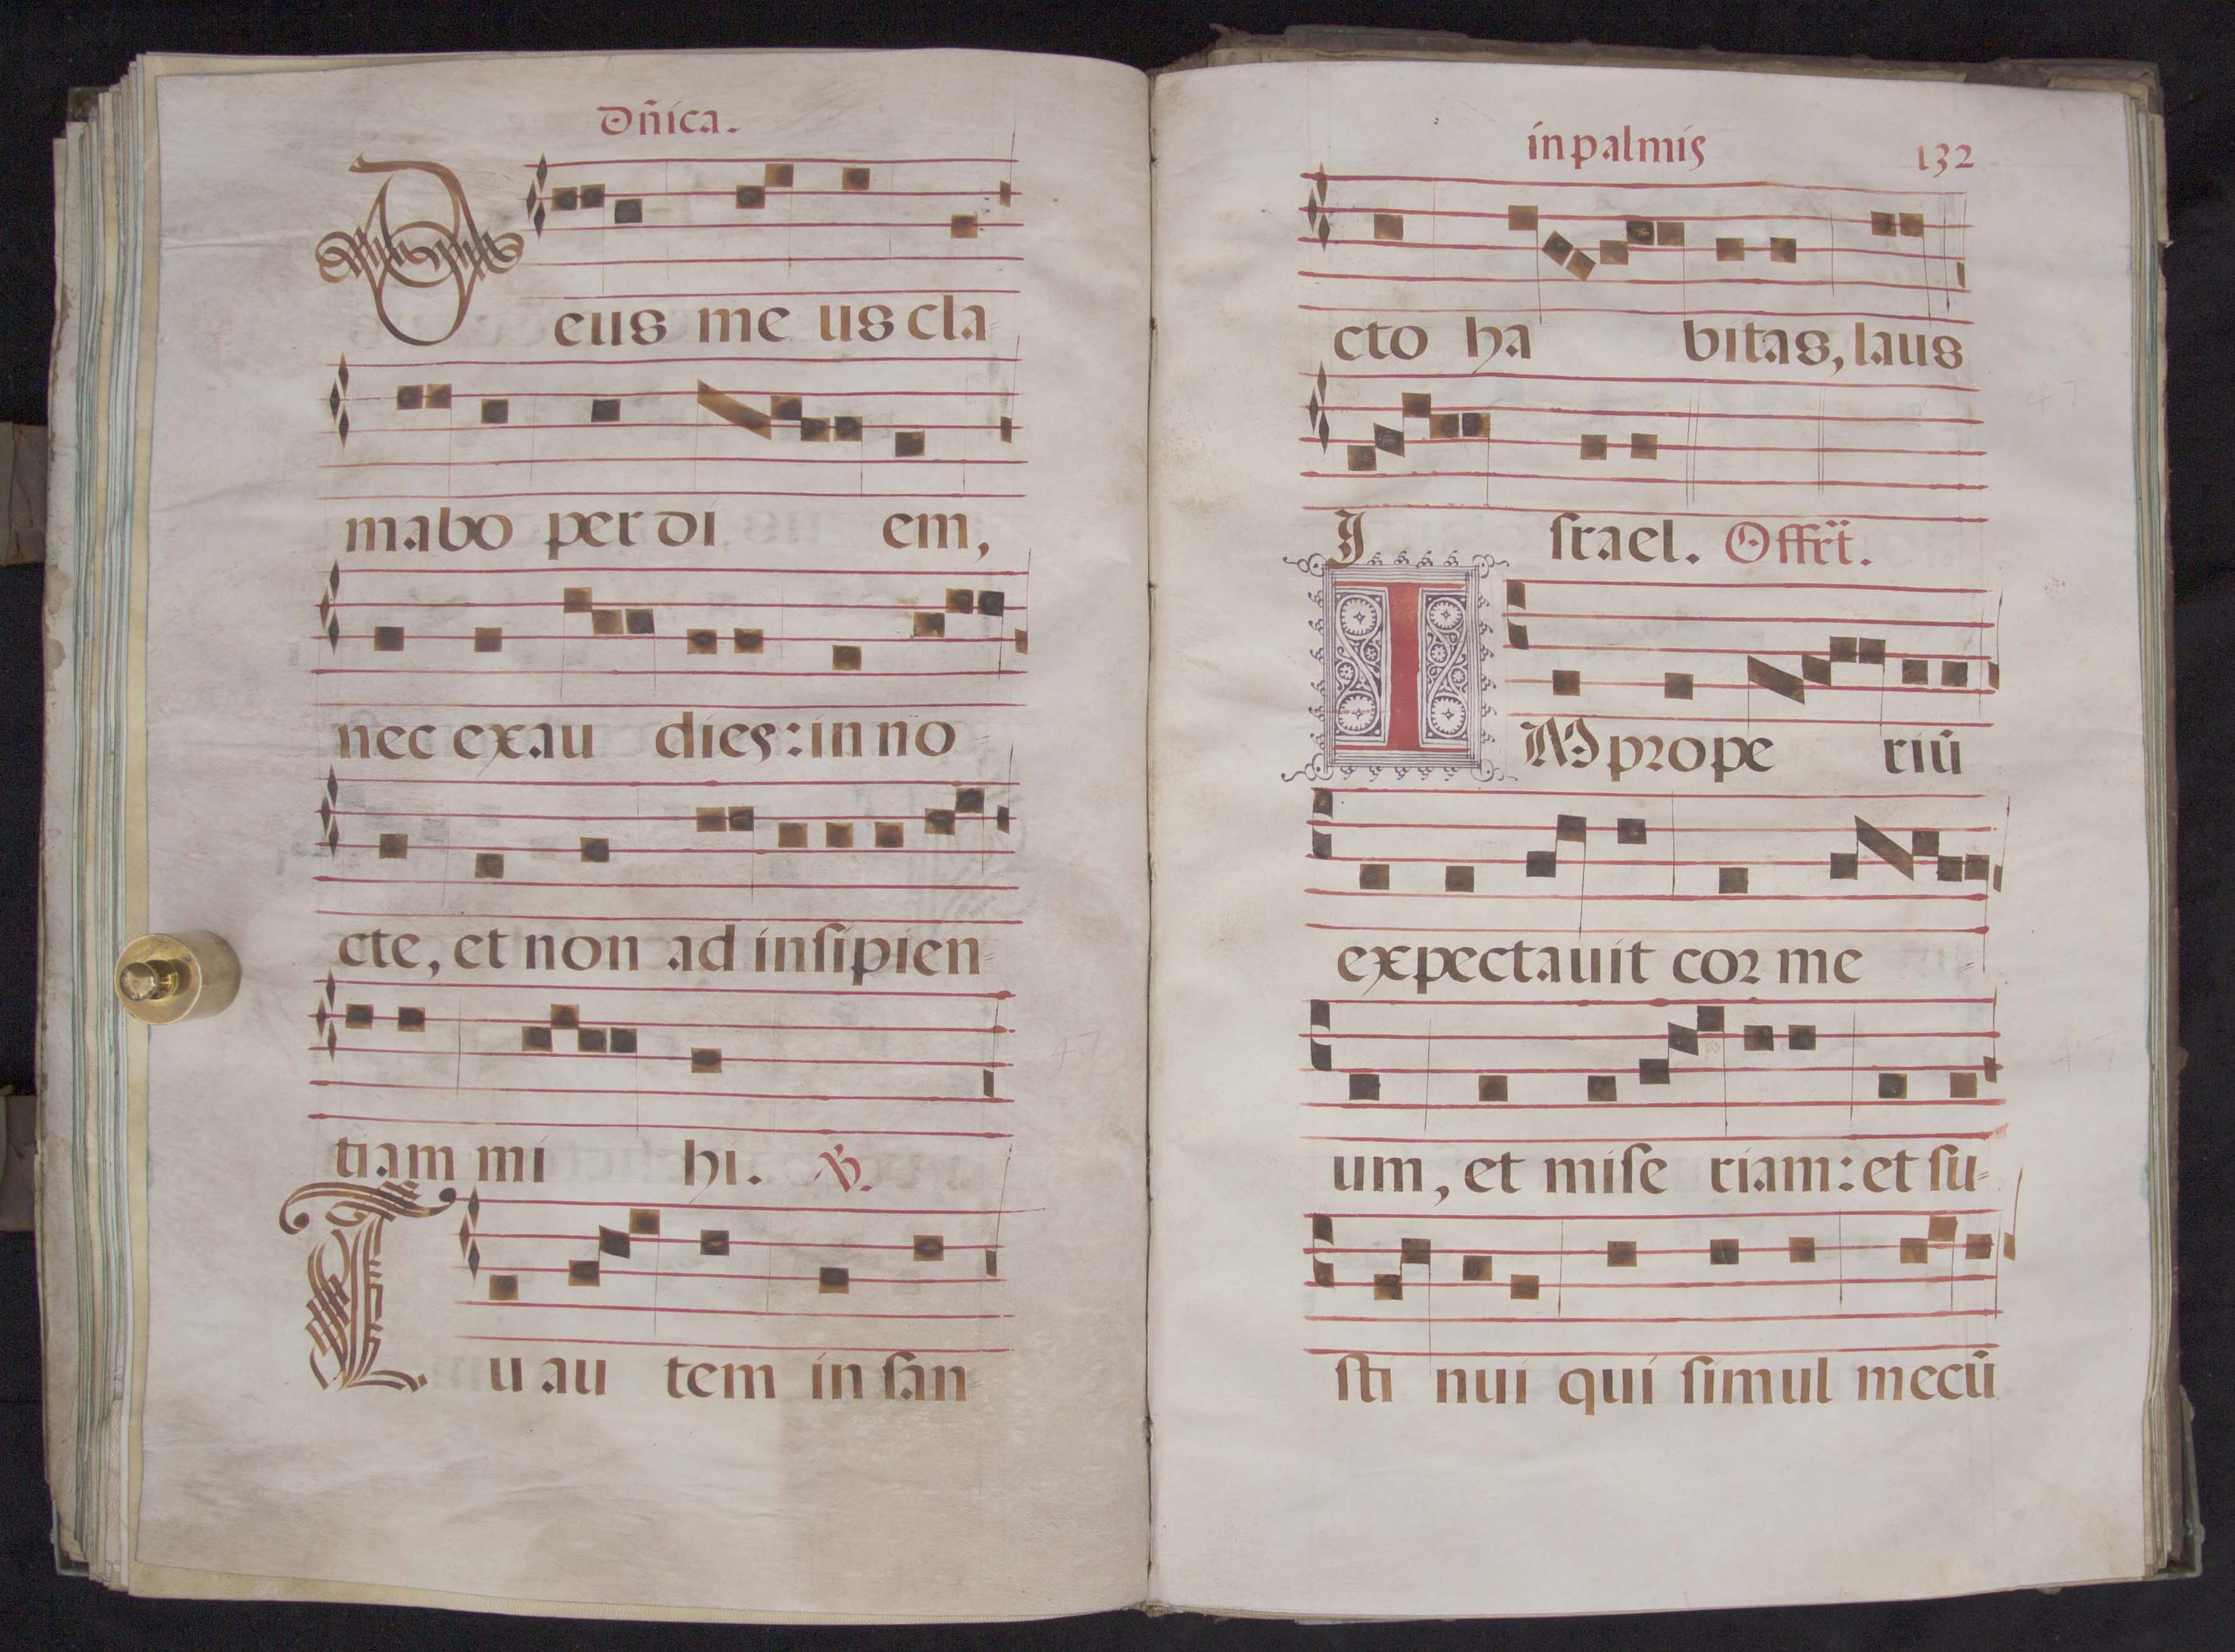 Dñica.
Deus me us cla-
mabo per di em,
nec exau dies: in no-
cte, et non ad insipien-
tiam mi hi. ℣.
Tu au tem in san-
in palmis 132
cto ha bitas, laus
I srael. Offr̃t.
IMprope riũ
expectauit cor me-
um, et mise riam: et su-
sti nui qui simul mecũ